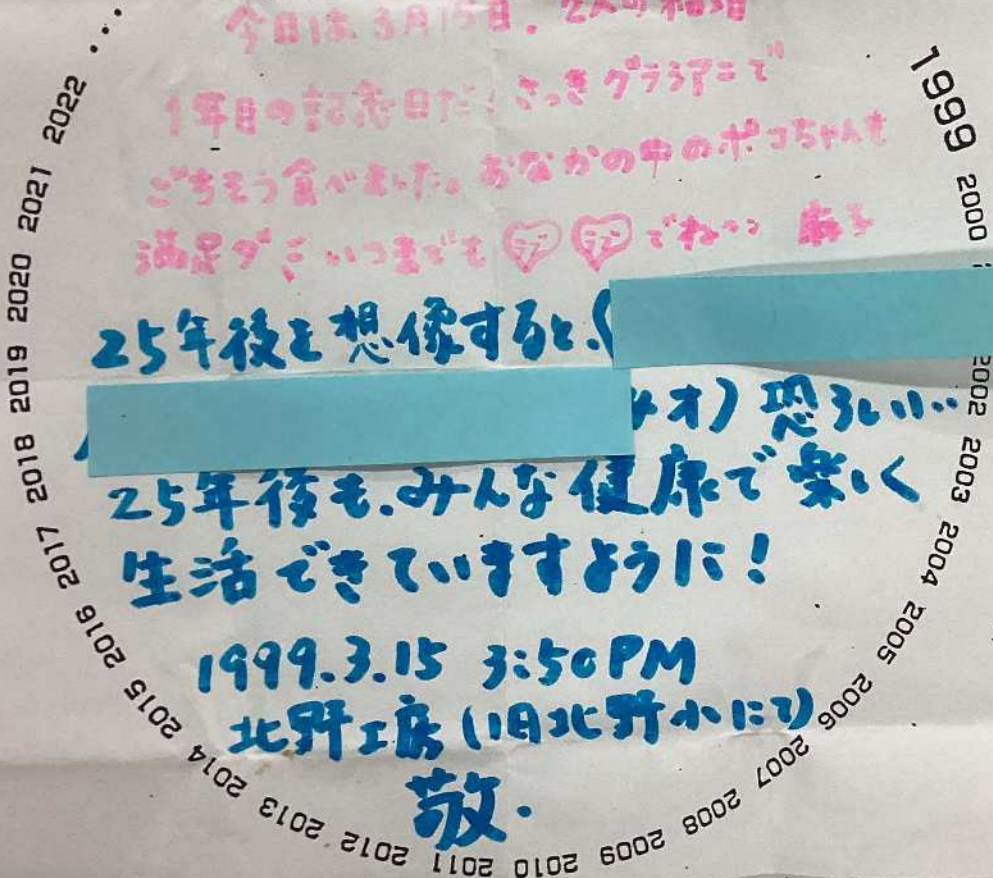 今日は3月15日. 2人の結婚
1年目の記念日だ! さっきグラシアニで
ごちそう食べました。おなかの中のポコちゃんも
満足ダ いつまでも ラブ ラブ でねっ 麻子
25年後を想像すると.(
オ) 恐ろしい..
25年後も.みんな健康で楽しく
生活できていますように!
1999.3.15 3:50PM
北野工房(旧北野小にて)
敬.
1999 2000 2002 2003 2004 2005 2006 2007 2008 2009 2010 2011 2012 2013 2014 2015 2016 2017 2018 2019 2020 2021 2022 ...